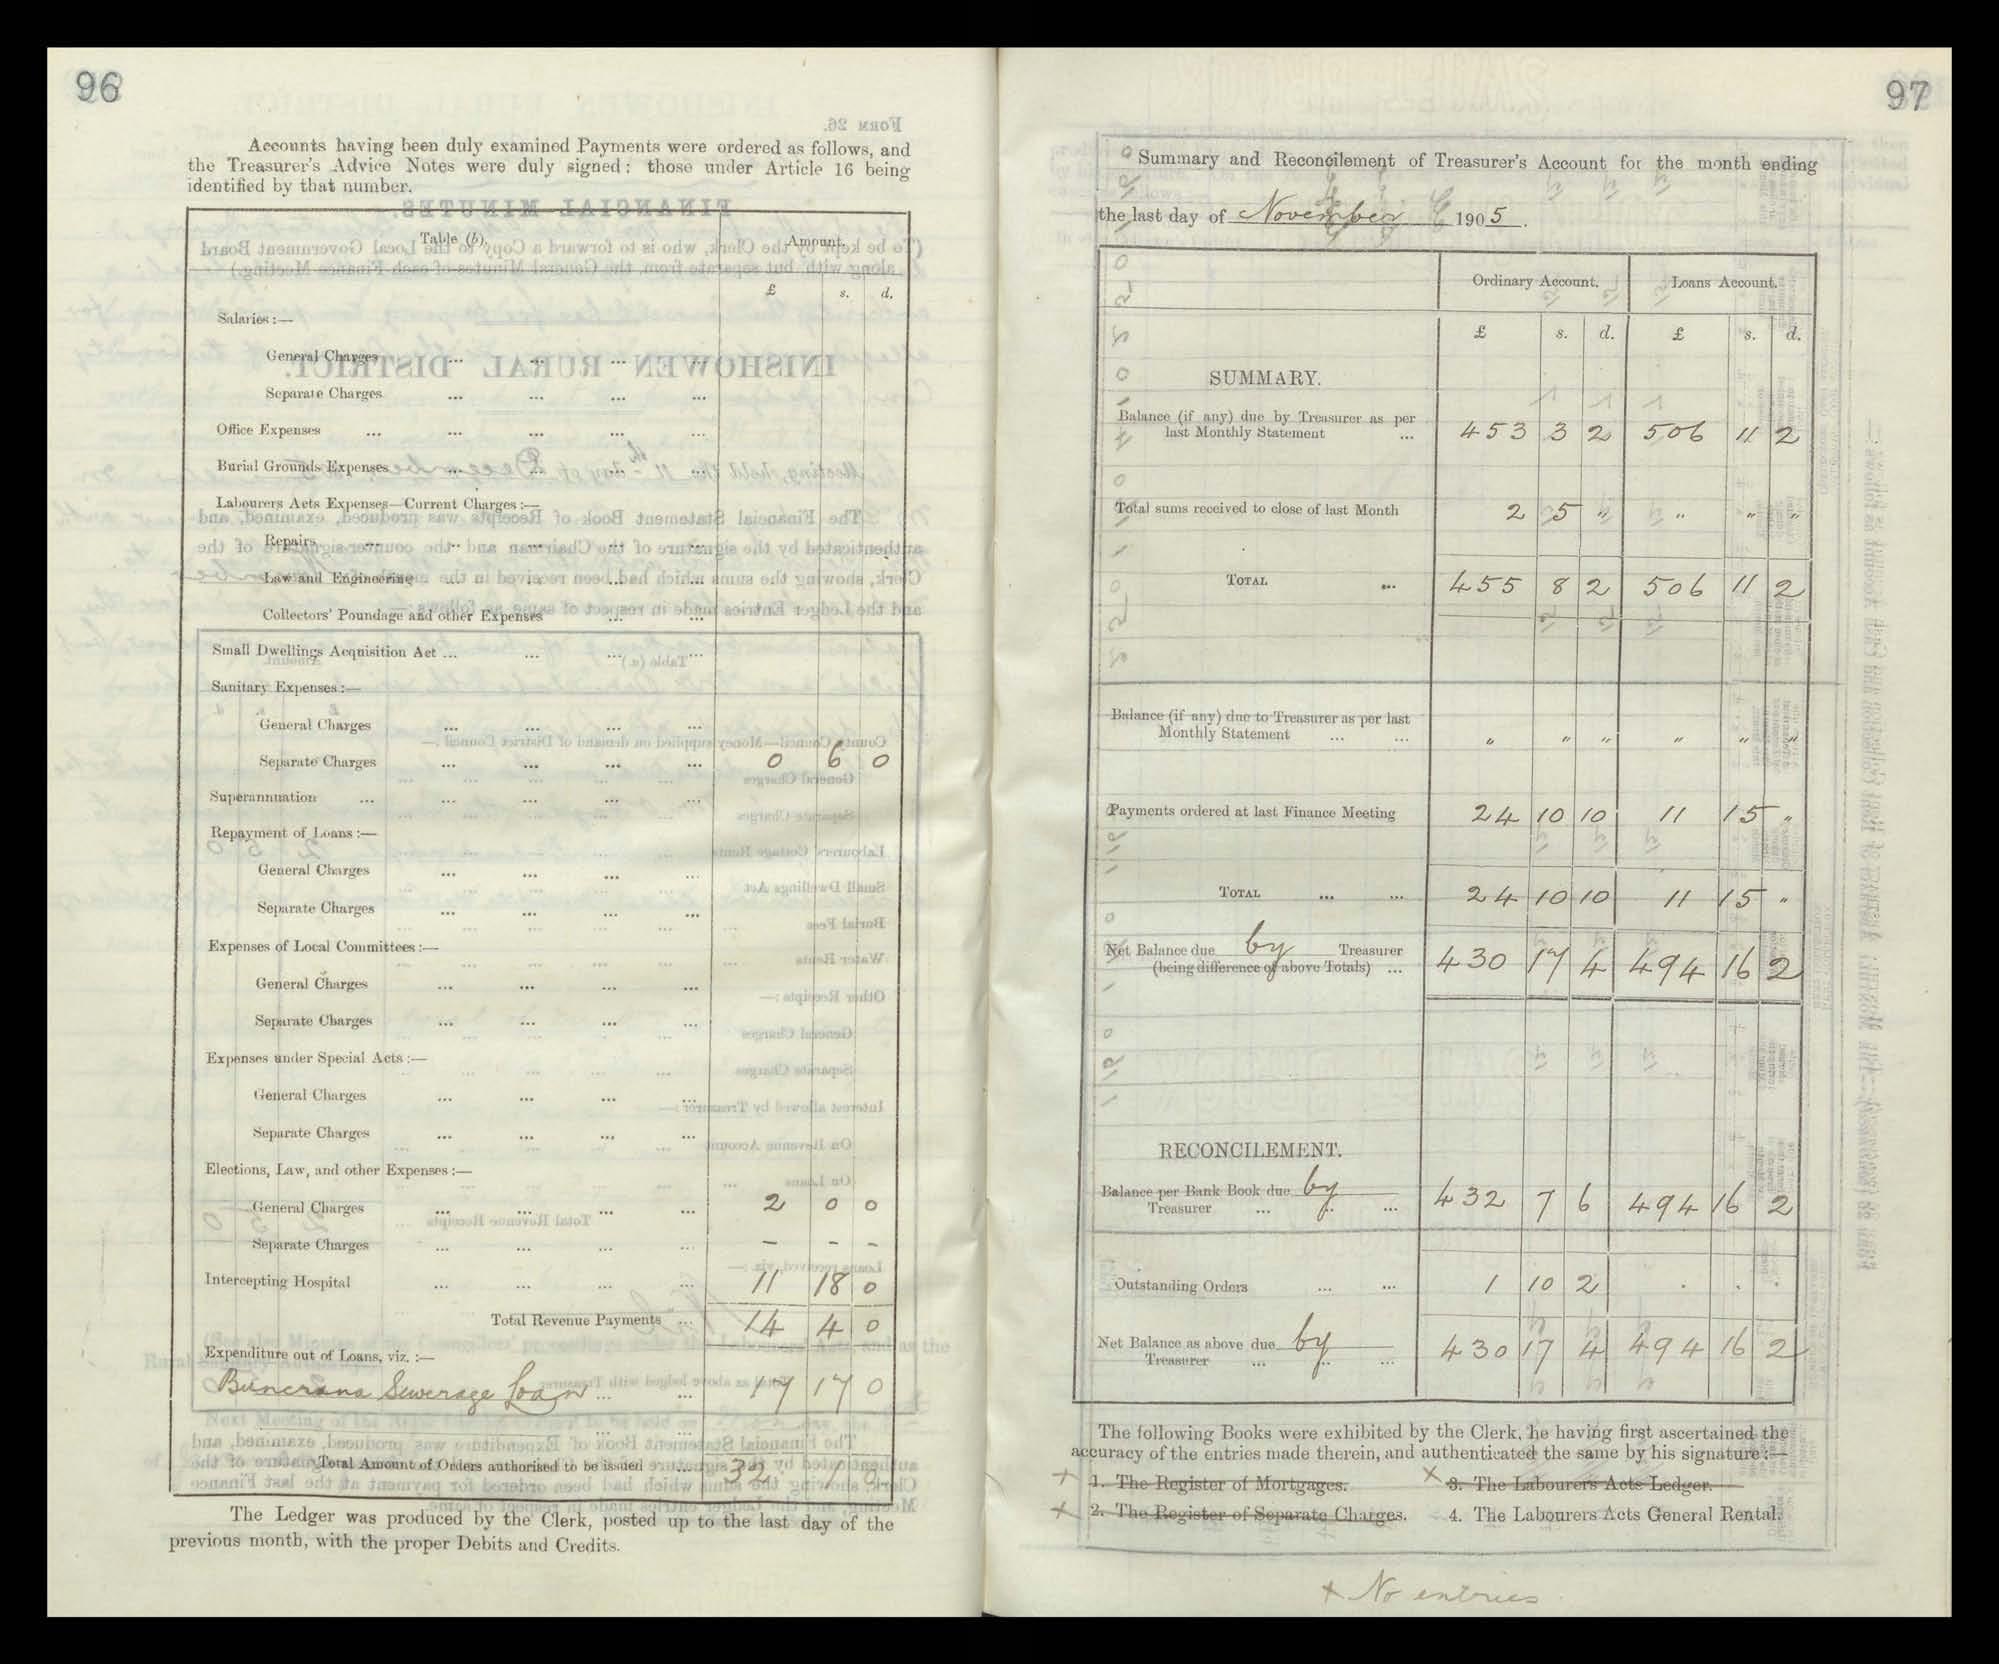 96
Accounts having been duly examined Payments were ordered as follows, and
the Treasurer's Advice Notes were duly signed: those under Article 16 being
identified by that number.
Table (b). Amount.
£ s. d.
Salaries:—
General Charges ... ... ... ...
Separate Charges ... ... ... ...
Office Expenses ... ... ... ... ...
Burial Grounds Expenses ... ... ... ...
Labourers Acts Expenses—Current Charges:—
Repairs ... ... ... ... ...
Law and Engineering ... ... ... ...
Collectors' Poundage and other Expenses ... ...
Small Dwellings Acquisition Act ... ... ... ...
Sanitary Expenses:—
General Charges ... ... ... ...
Separate Charges ... ... ... ... 0 6 0
Superannuation ... ... ... ... ...
Repayment of Loans:—
General Charges ... ... ... ...
Separate Charges ... ... ... ...
Expenses of Local Committees:—
General Charges ... ... ... ...
Separate Charges ... ... ... ...
Expenses under Special Acts:—
General Charges ... ... ... ...
Separate Charges ... ... ... ...
Elections, Law, and other Expenses:—
General Charges ... ... ... ... 2 0 0
Separate Charges ... ... ... ... – – –
Intercepting Hospital ... ... ... ... 11 18 0
Total Revenue Payments ... 14 4 0
Expenditure out of Loans, viz.:—
Buncrana Sewerage Loan ... ... 17 17 0
Total Amount of Orders authorised to be issued ... 32 1 0
The Ledger was produced by the Clerk, posted up to the last day of the
previous month, with the proper Debits and Credits.
97
Summary and Reconcilement of Treasurer's Account for the month ending
the last day of November 1905.
Ordinary Account. Loans Account.
£ s. d. £ s. d.
SUMMARY.
Balance (if any) due by Treasurer as per
last Monthly Statement ... 453 3 2 506 11 2
Total sums received to close of last Month 2 5 " " " "
TOTAL ... 455 8 2 506 11 2
Balance (if any) due to Treasurer as per last
Monthly Statement ... ... " " " " " "
Payments ordered at last Finance Meeting 24 10 10 11 15 "
TOTAL ... ... 24 10 10 11 15 "
Net Balance due by Treasurer
(being difference of above Totals) ... 430 17 4 494 16 2
RECONCILEMENT.
Balance per Bank Book due by
Treasurer ... ... ... 432 7 6 494 16 2
Outstanding Orders ... ... 1 10 2 . . .
Net Balance as above due by
Treasurer ... ... ... 430 17 4 494 16 2
The following Books were exhibited by the Clerk, he having first ascertained the
accuracy of the entries made therein, and authenticated the same by his signature:—
+ 1. The Register of Mortgages. × 3. The Labourers Acts Ledger.
+ 2. The Register of Separate Charges. 4. The Labourers Acts General Rental.
+ No entries